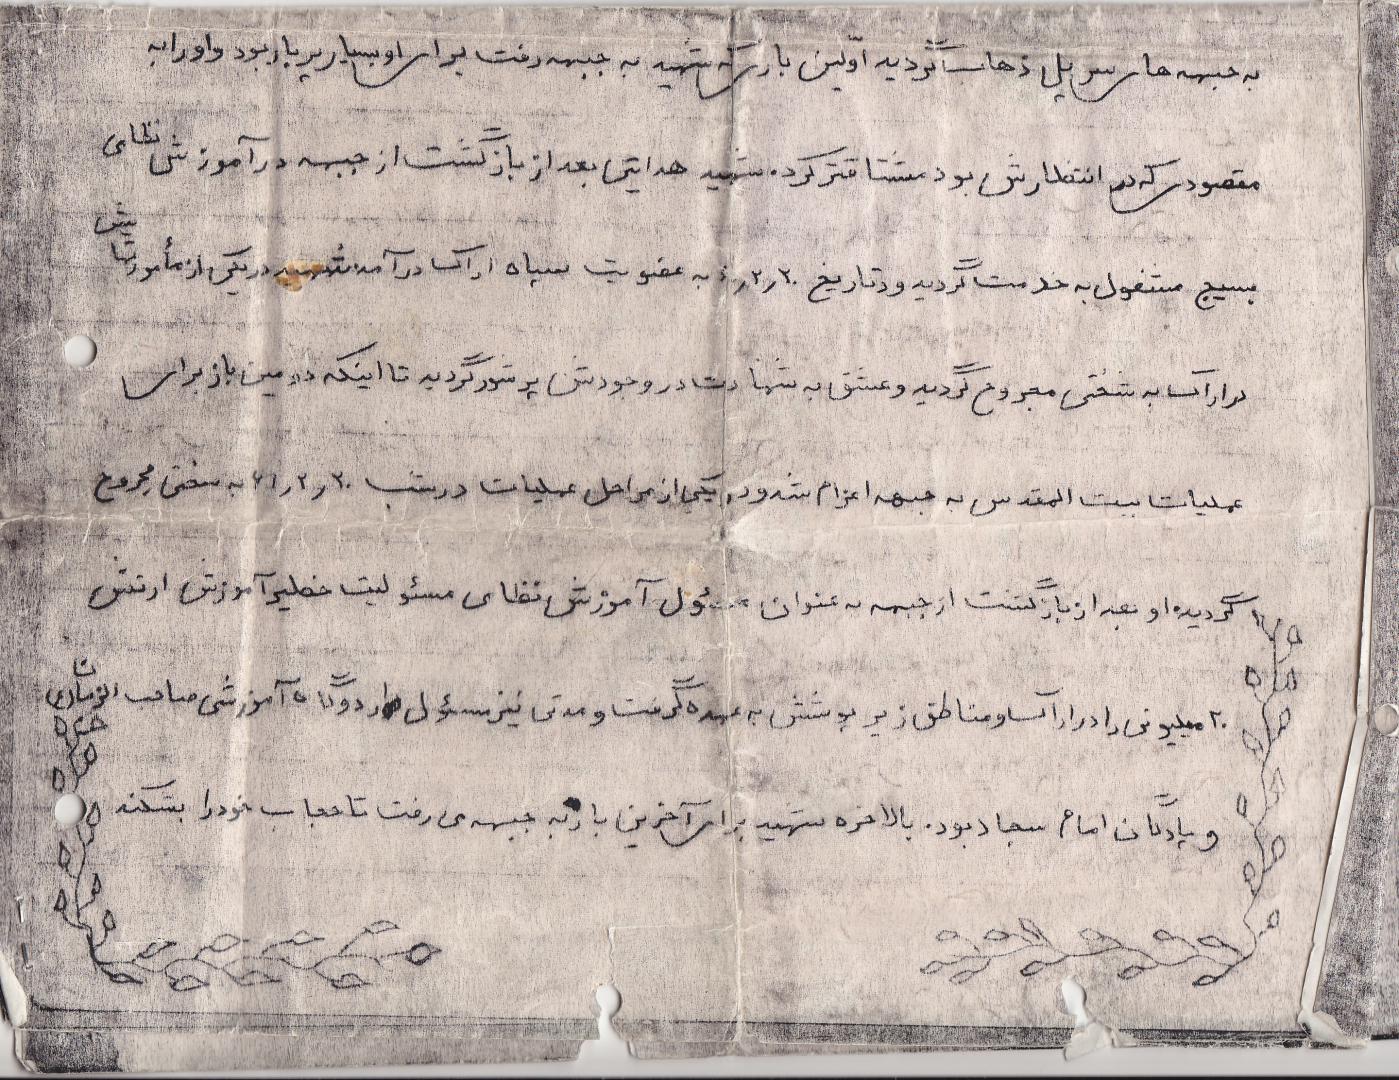 به جبهه های سرپل ذهاب گردید اوّلین باری که شهید به جبهه رفت برای او بسیار پربار بود و او را به
مقصودی که در انتظارش بود مشتاقتر کرد. شهید هدایتی بعد از بازگشت از جبهه در آموزش نظامی
بسیج مشغول به خدمت گردید و در تاریخ به عضویت سپاه اراک درآمد شهید در یکی از مأموریتهایش
در اراک به سختی مجروح گردید و عشق به شهادت در وجودش پر شور گردید تا اینکه دومین بار برای
عملیات بیت المقدس به جبهه اعزام شد و در یکی از مراحل عملیات در شب ۶۱٫۲٫۲۰ به سختی مجروح
گردید. او بعد از بازگشت از جبهه به عنوان مسئول آموزش نظامی مسئولیت خطیر آموزش ارتش
۲۰ میلیونی را در اراک و مناطق زیر پوشش به عهده گرفت و مدتی نیز مسئول اردوگاه آموزشی صاحب الزمان
و پادگان امام سجاد بود. بالاخره شهید برای آخرین بار به جبهه می رفت تا حجاب خود را بشکند